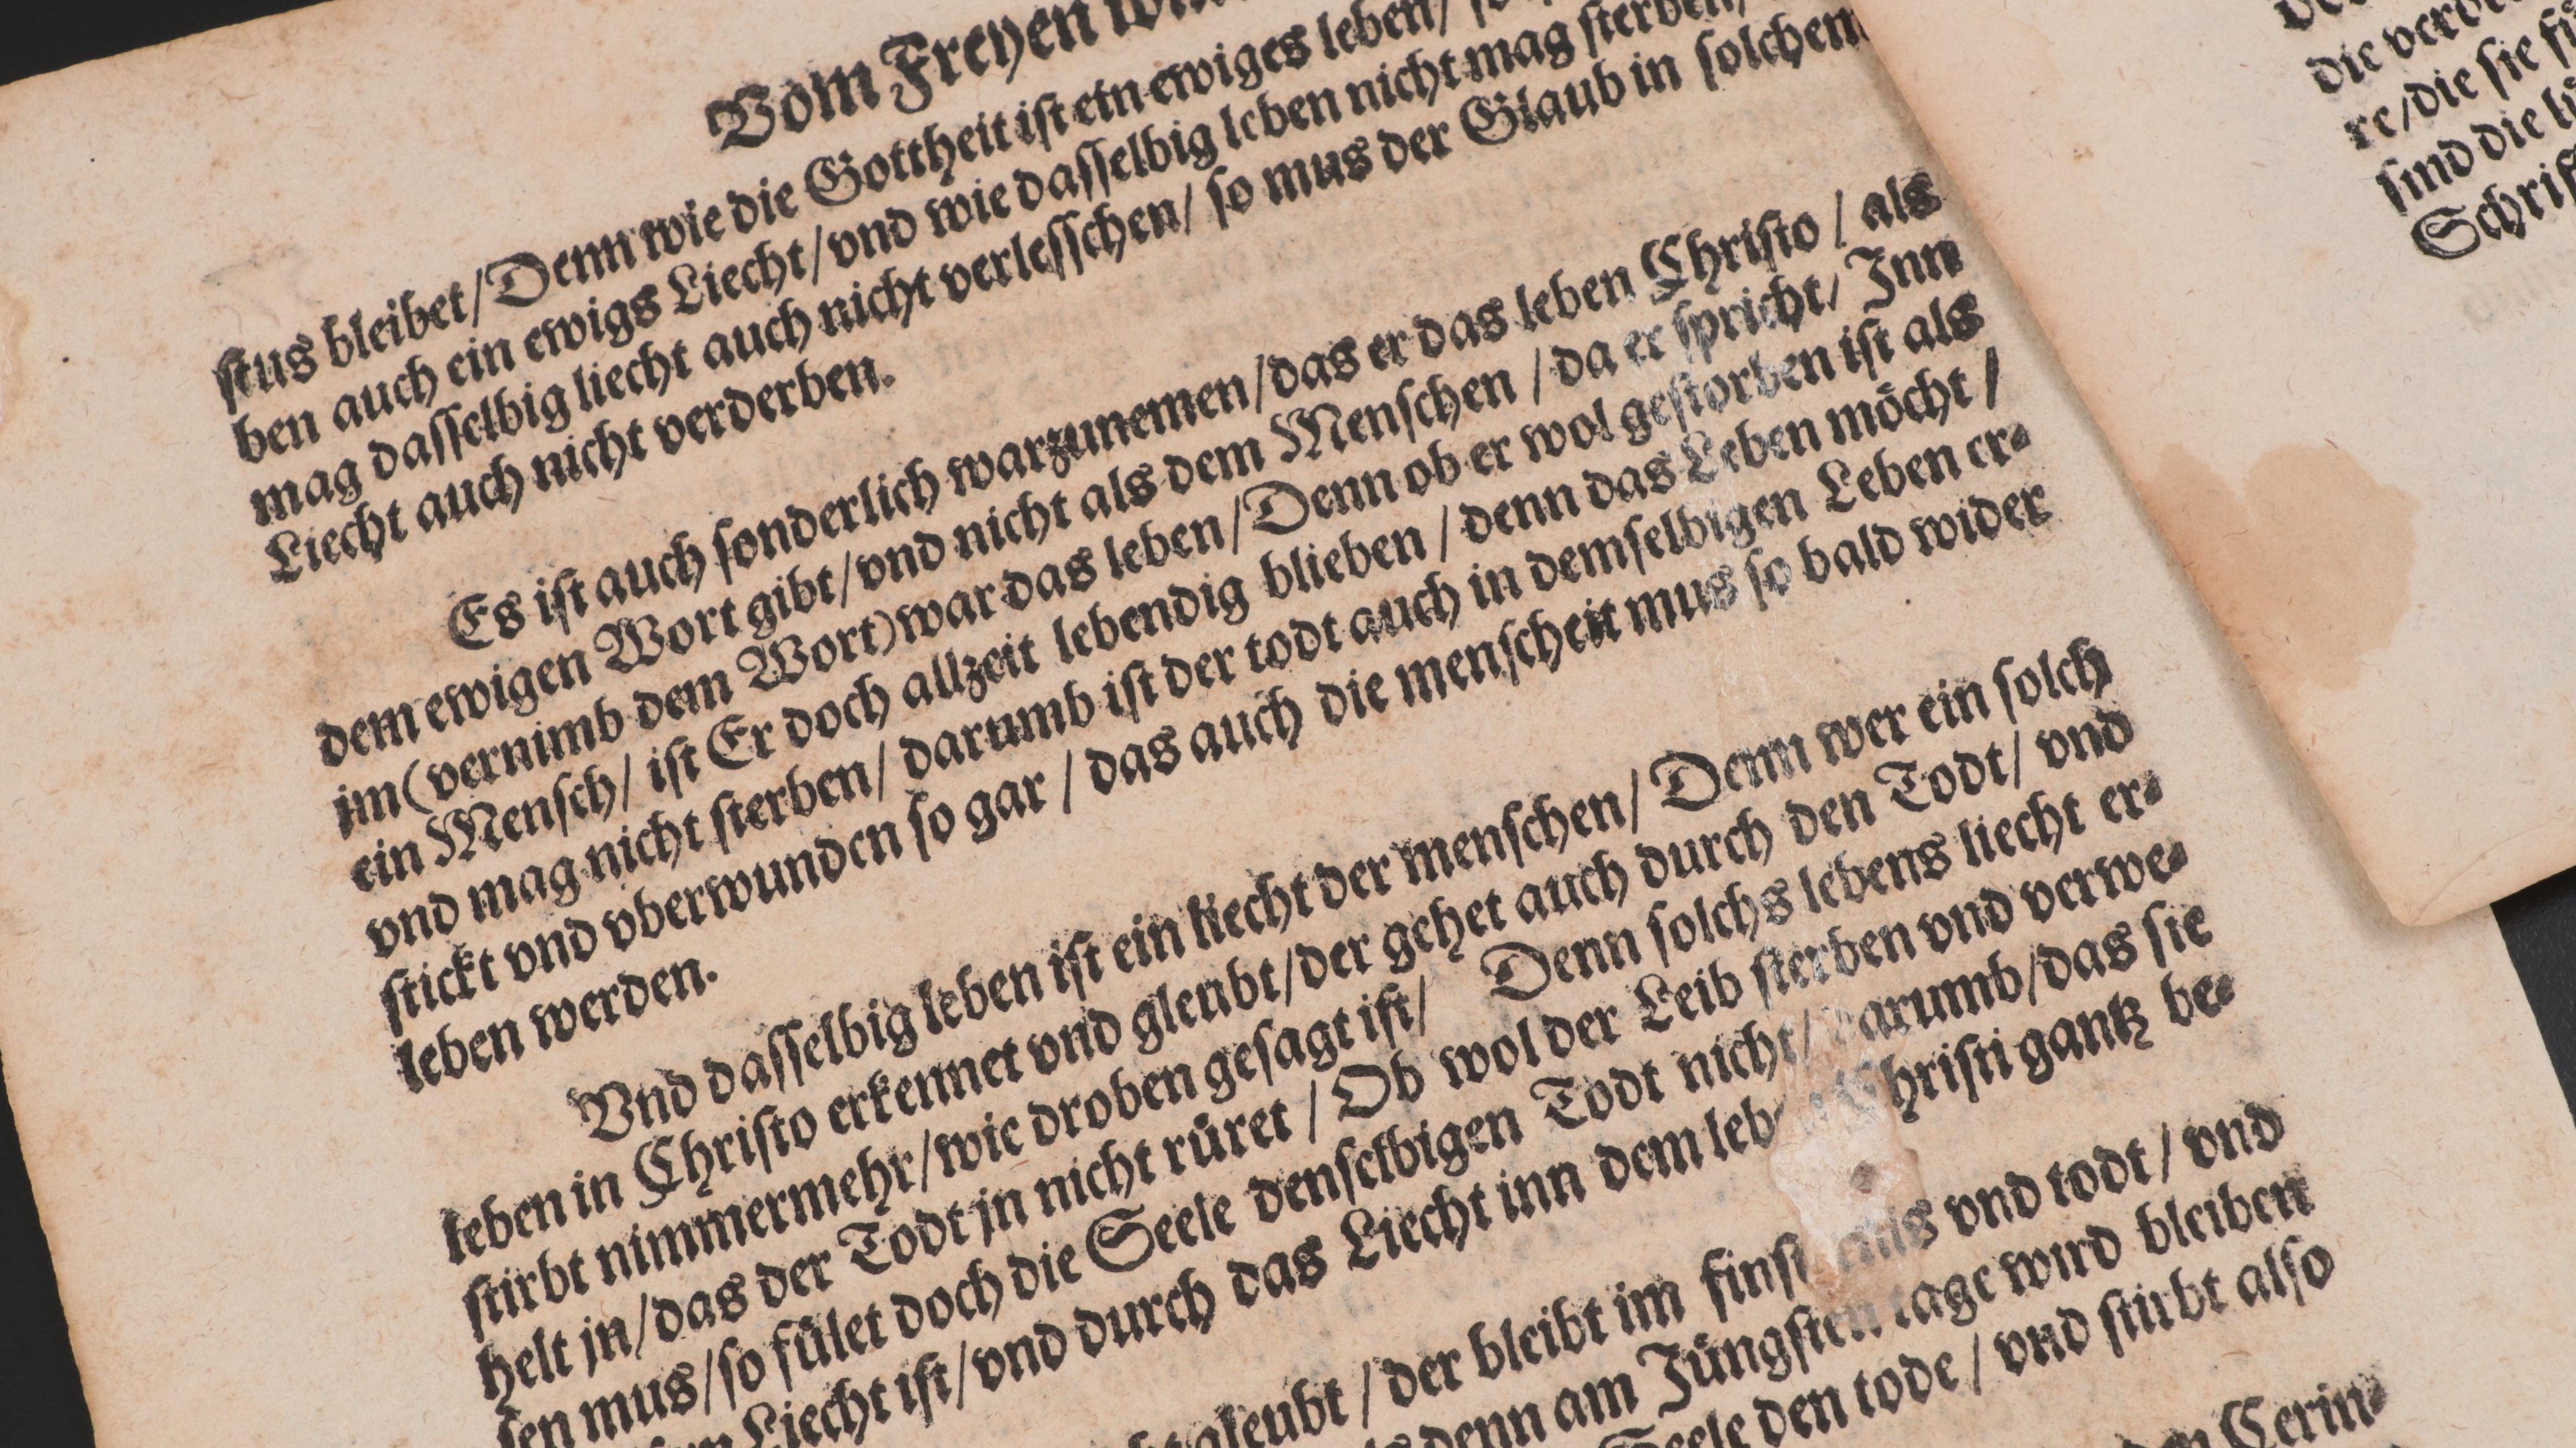 Vom Freyen
stus bleibet/Denn wie die Gottheit ist ein ewiges leben/
ben auch ein ewigs Liecht/vnd wie dasselbig leben nicht mag sterben/
mag dasselbig liecht auch nicht verlesschen/ so mus der Glaub in solchem
Liecht auch nicht verderben.
Es ist auch sonderlich warzunemen/das er das leben Christo / als
dem ewigen Wort gibt/vnd nicht als dem Menschen / da er spricht/ Inn
jm (vernimb dem Wort) war das leben/Denn ob er wol gestorben ist als
ein Mensch/ ist Er doch allzeit lebendig blieben / denn das Leben möcht /
vnd mag nicht sterben/ darumb ist der todt auch in demselbigen Leben er-
stickt vnd vberwunden so gar / das auch die menscheit mus so bald wider
leben werden.
Vnd dasselbig leben ist ein liecht der menschen/ Denn wer ein solch
leben in Christo erkennet vnd gleubt/der gehet auch durch den Todt/ vnd
stirbt nimmermehr/wie droben gesagt ist/ Denn solchs lebens liecht er-
helt jn/das der Todt jn nicht rüret / Ob wol der Leib sterben vnd verwe-
sen mus/so fület doch die Seele denselbigen Todt nicht/ darumb/das sie
Liecht ist/vnd durch das Liecht inn dem leben Christi gantz be-
gleubt / der bleibt im vnd todt / vnd
denn am Jüngsten tage wird bleiben
Seele den tode / vnd stirbt also
Cerin-
die
re/die sie
sind die